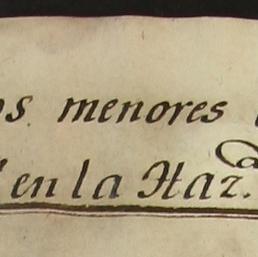 os menores
en la Haz.